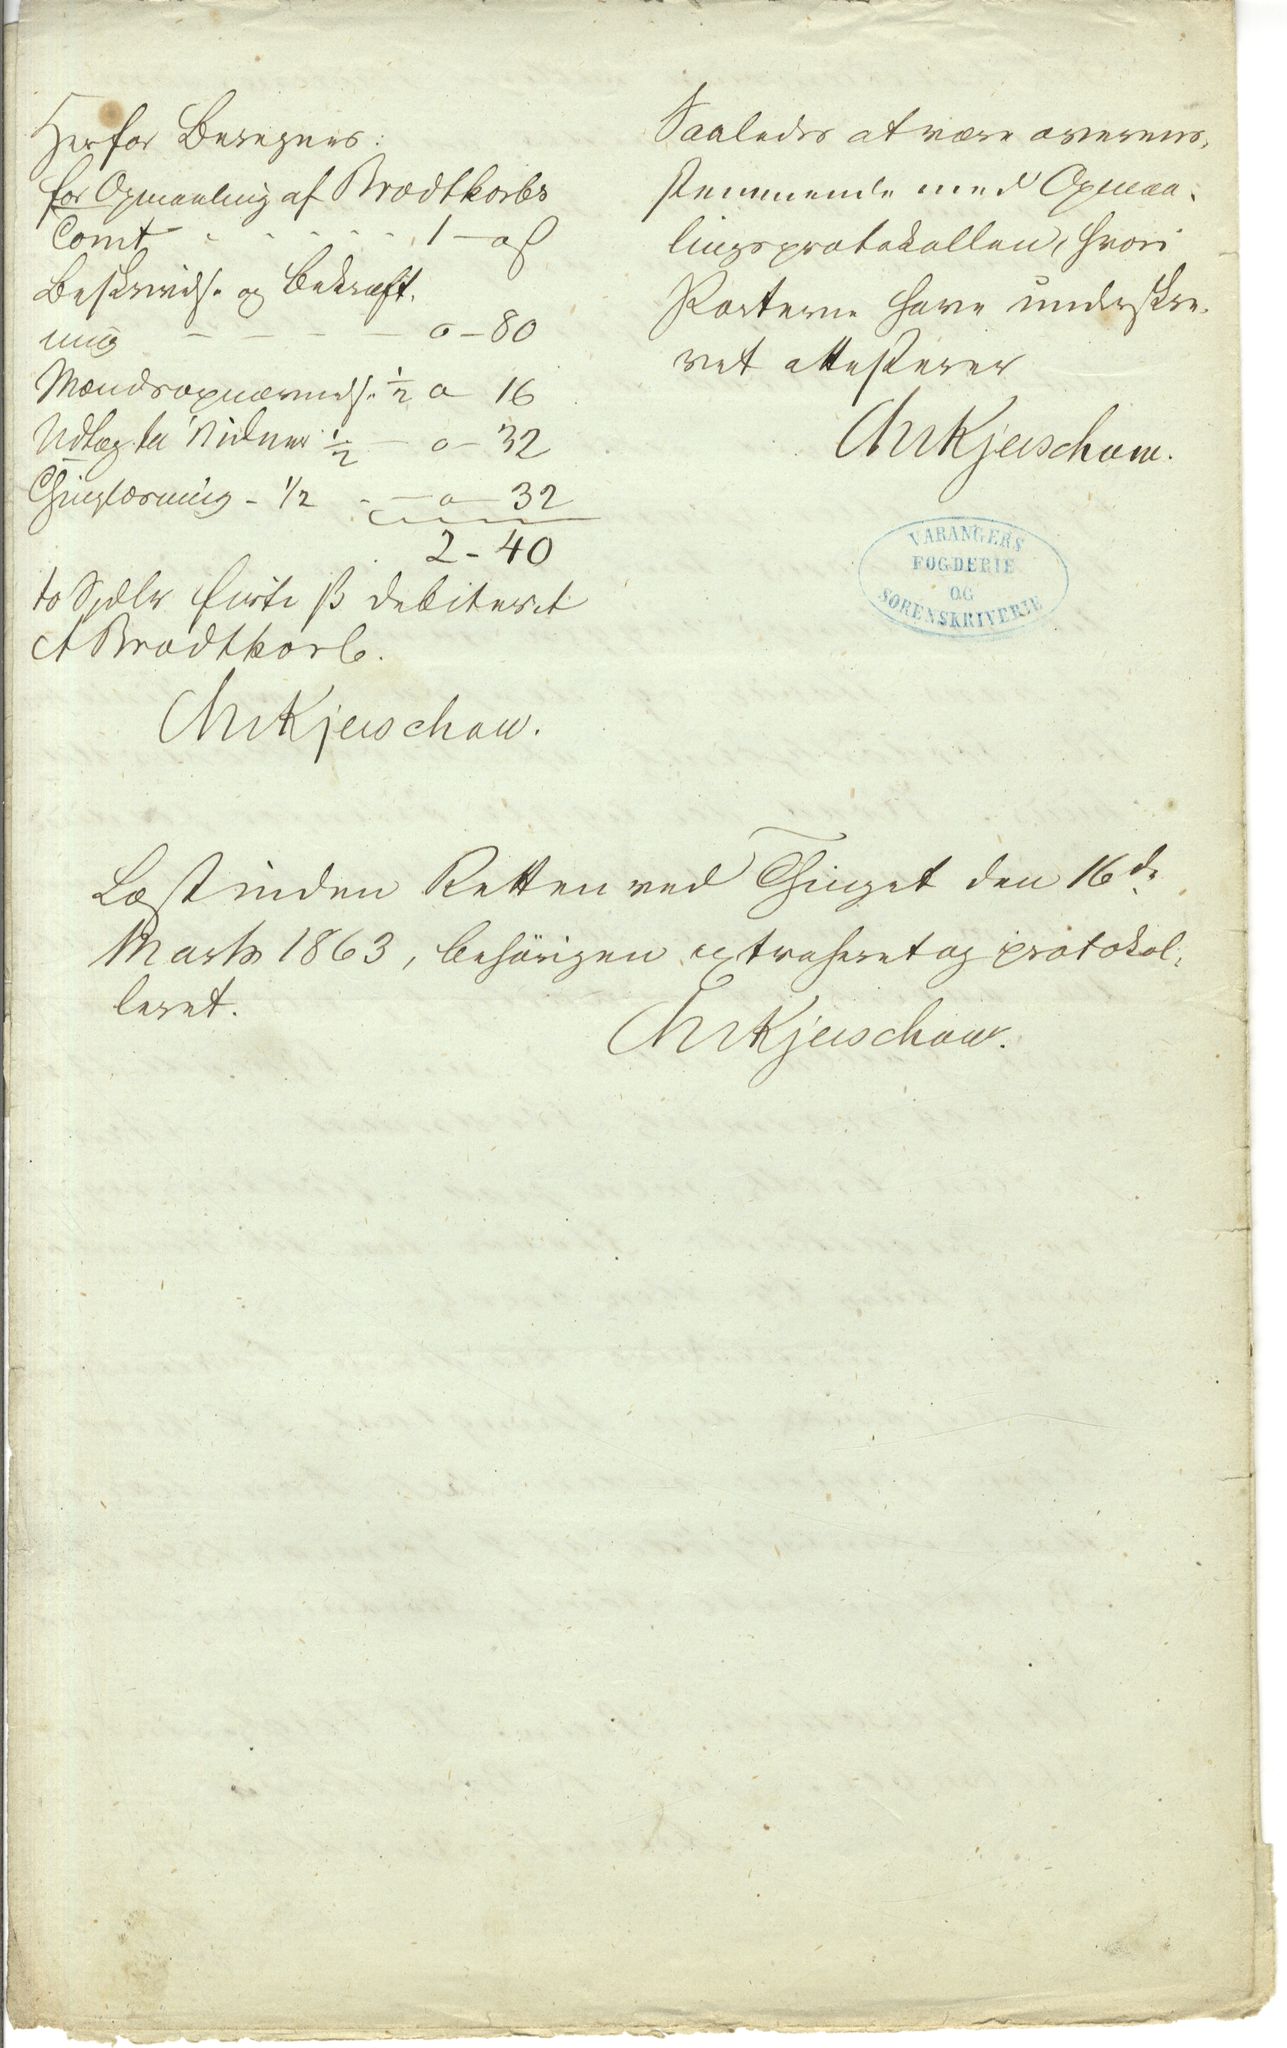 Herfor Beregnes:
for Opmaaling af Brodtkorbs
Comt - - - - - 1 - o ß
Beskrivelse og bekræft-
ning - - - - - o - 80
Mændsopnævnelse ½ o 16
Udlæg til Vidner ½ - o - 32
Thinglæsning - 1/2 - - o - 32
2 - 40
to Spdlr firti ß debiteret
A Brodtkorb.
Chr Kjerschow.
Saaledes at være overens-
stemmende med Opmaa-
lingsprotokollen, hvori
Parterne have underskre-
vet attesterer
Chr Kjerschow.
VARANGERS
FOGDERIE
OG
SORENSKRIVERIE
Læst inden Retten ved Thinget den 16de
Marts 1863, behørigen extraheret og protokol-
leret.
Chr Kjerschow.